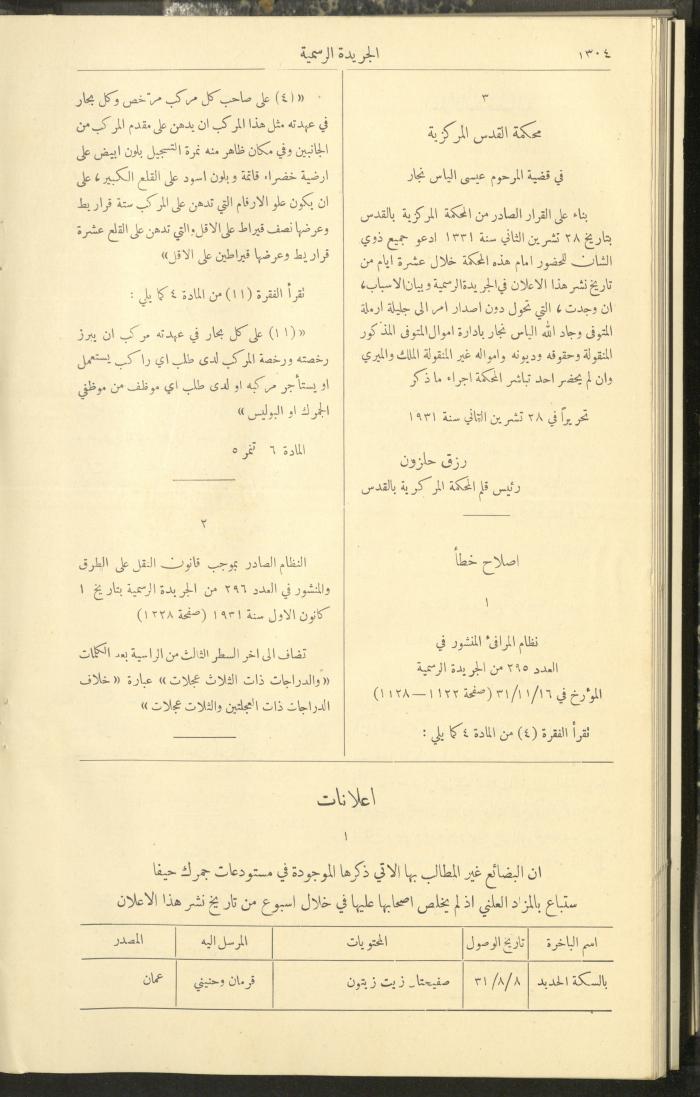 ١٣٠٤
الجريدة الرسمية
٣
محكمة القدس المركزية
في قضية المرحوم عيسى الياس نجار
بناء على القرار الصادر من المحكمة المركزية بالقدس
بتاريخ ٢٨ تشرين الثاني سنة ١٣٣١ ادعو جميع ذوي
الشان للحضور امام هذه المحكمة خلال عشرة ايام من
تاريخ نشر هذا الاعلان في الجريدة الرسمية وبيان الاسباب،
ان وجدت، التي تحول دون اصدار امر الى جليلة ارملة
المتوفى وجاد الله الياس نجار بادارة اموال المتوفى المذكور
المنقولة وحقوقه وديونه وامواله غير المنقولة الملك والميري
وان لم يحضر احد تباشر المحكمة اجراء ما ذكر
تحريراً في ٢٨ تشرين الثاني سنة ١٩٣١
رزق حلزون
رئيس قلم المحكمة المركزية بالقدس
اصلاح خطأ
١
نظام المرافئ المنشور في
العدد ٢٩٥ من الجريدة الرسمية
المؤرخ في ٣١/١١/١٦ (صفحة ١١٢٢—١١٢٨)
تقرأ الفقرة (٤) من المادة ٤ كما يلي :
«(٤) على صاحب كل مركب مرخص وكل بحار
في عهدته مثل هذا المركب ان يدهن على مقدم المركب من
الجانبين وفي مكان ظاهر منه نمرة التسجيل بلون ابيض على
ارضية خضراء قاتمة وبلون اسود على القلع الكبير، على
ان يكون علو الارقام التي تدهن على المركب ستة قراريط
وعرضها نصف قيراط على الاقل والتي تدهن على القلع عشرة
قراريط وعرضها قيراطين على الاقل»
تقرأ الفقرة (١١) من المادة ٤ كما يلي :
«(١١) على كل بحار في عهدته مركب ان يبرز
رخصته ورخصة المركب لدى طلب اي راكب يستعمل
او يستأجر مركبه او لدى طلب اي موظف من موظفي
الجمرك او البوليس»
المادة ٦ تنمر ٥
٢
النظام الصادر بموجب قانون النقل على الطرق
والمنشور في العدد ٢٩٦ من الجريدة الرسمية بتاريخ ١
كانون الاول سنة ١٩٣١ (صفحة ١٢٢٨)
تضاف الى اخر السطر الثالث من الراسية بعد الكلمات
«والدراجات ذات الثلاث عجلات» عبارة «خلاف
الدراجات ذات العجلتين والثلاث عجلات»
اعلانات
١
ان البضائع غير المطالب بها الاتي ذكرها الموجودة في مستودعات جمرك حيفا
ستباع بالمزاد العلني اذ لم يخلص اصحابها عليها في خلال اسبوع من تاريخ نشر هذا الاعلان
اسم الباخرة تاريخ الوصول المحتويات المرسل اليه المصدر
بالسكة الحديد ٣١/٨/٨ صفيحتا زيت زيتون قرمان وحنيني عمان